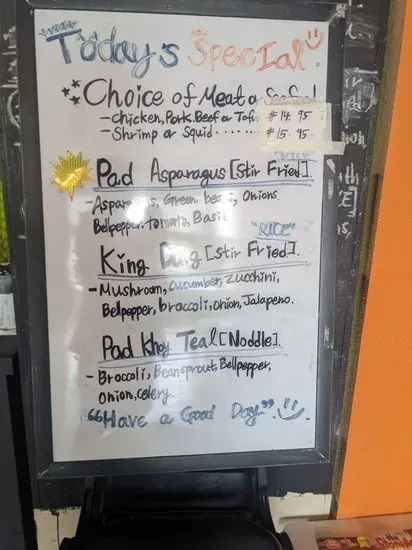 Today's Special!
Choice of Meat or
- Chicken, Pork, Beef or Tof
$14.95
- Shrimp or Squid
$15.95
"RICE"
Pad Asparagus [Stir Fried].
- Asparagus, Green beans, Onions
Bellpepper, tomato, Basil.
"RICE"
King [Stir Fried].
- Mushroom, cucumber, zucchini,
Bellpepper, broccoli, onion, Jalapeno.
Pad Khey Teal [Noddle].
- Broccoli, Beansprout, Bellpepper,
onion, celery.
"Have a Good Day"